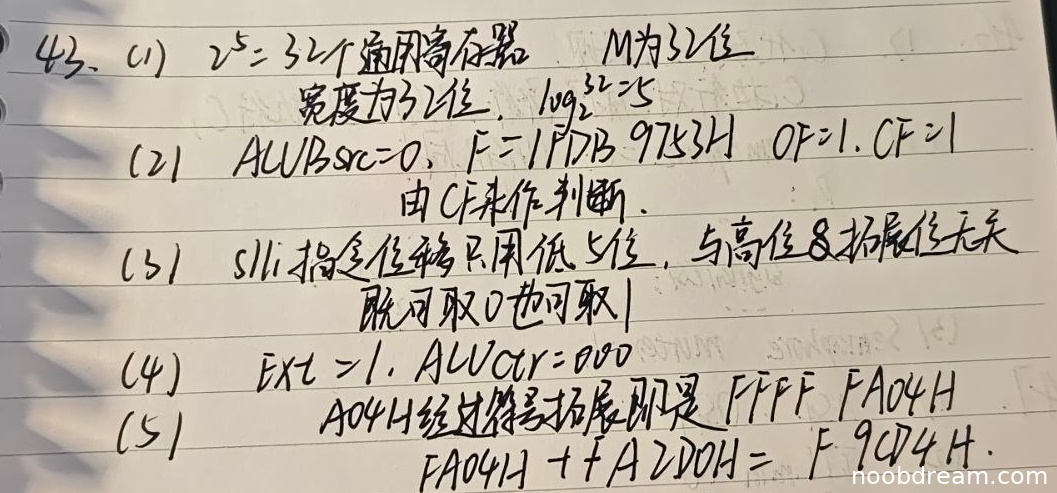 43、(1) 2⁵=32个通用寄存器 M为32位
宽度为32位, log₂³²=5
(2) ALUBsrc=0, F=1FDB 9753H OF=1. CF=1
由CF来作判断.
(3) slli指令位移只用低5位, 与高位&拓展位无关
既可取0也可取1
(4) Ext=1. ALUctr=000
(5) A04H经过符号拓展即是 FFFF FA04H
FA04H + FA2D0H = F9CD4H.
noobdream.com